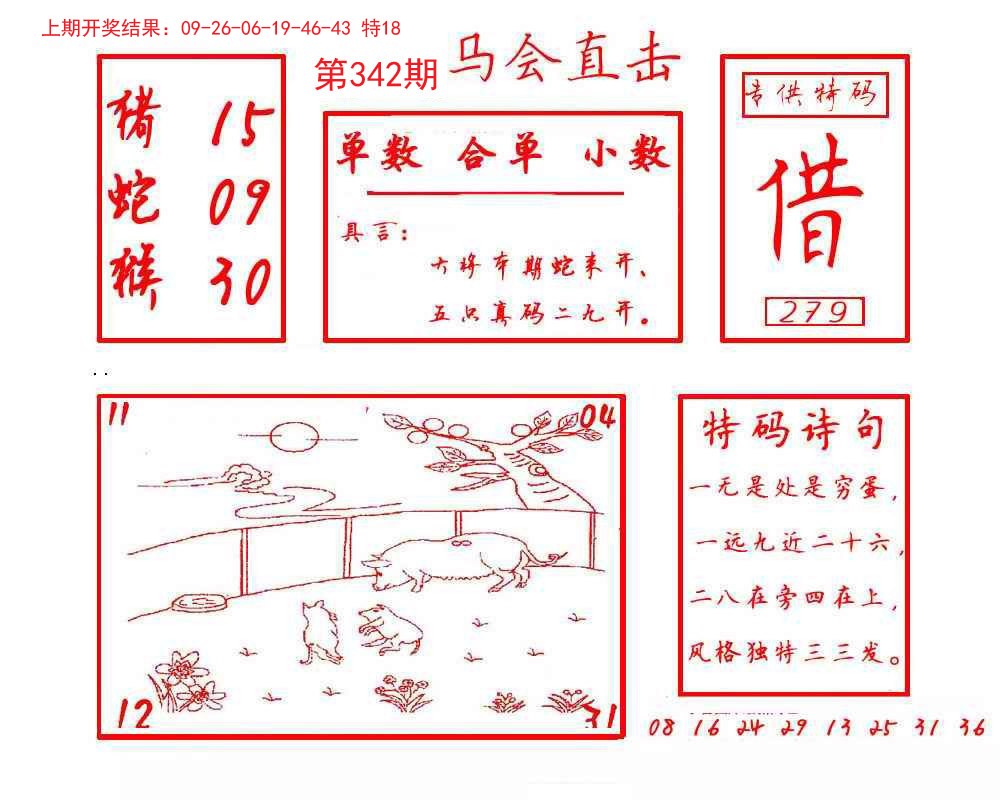 上期开奖结果：09-26-06-19-46-43 特18
第342期 马会直击
猪 15
蛇 09
猴 30
单数 合单 小数
具言：
大将本期蛇来开、
五只真码二九开。
专供特码
借
279
11
04
12
31
特码诗句
一无是处是穷蛋，
一远九近二十六，
二八在旁四在上，
风格独特三三发。
08 16 24 29 13 25 31 36